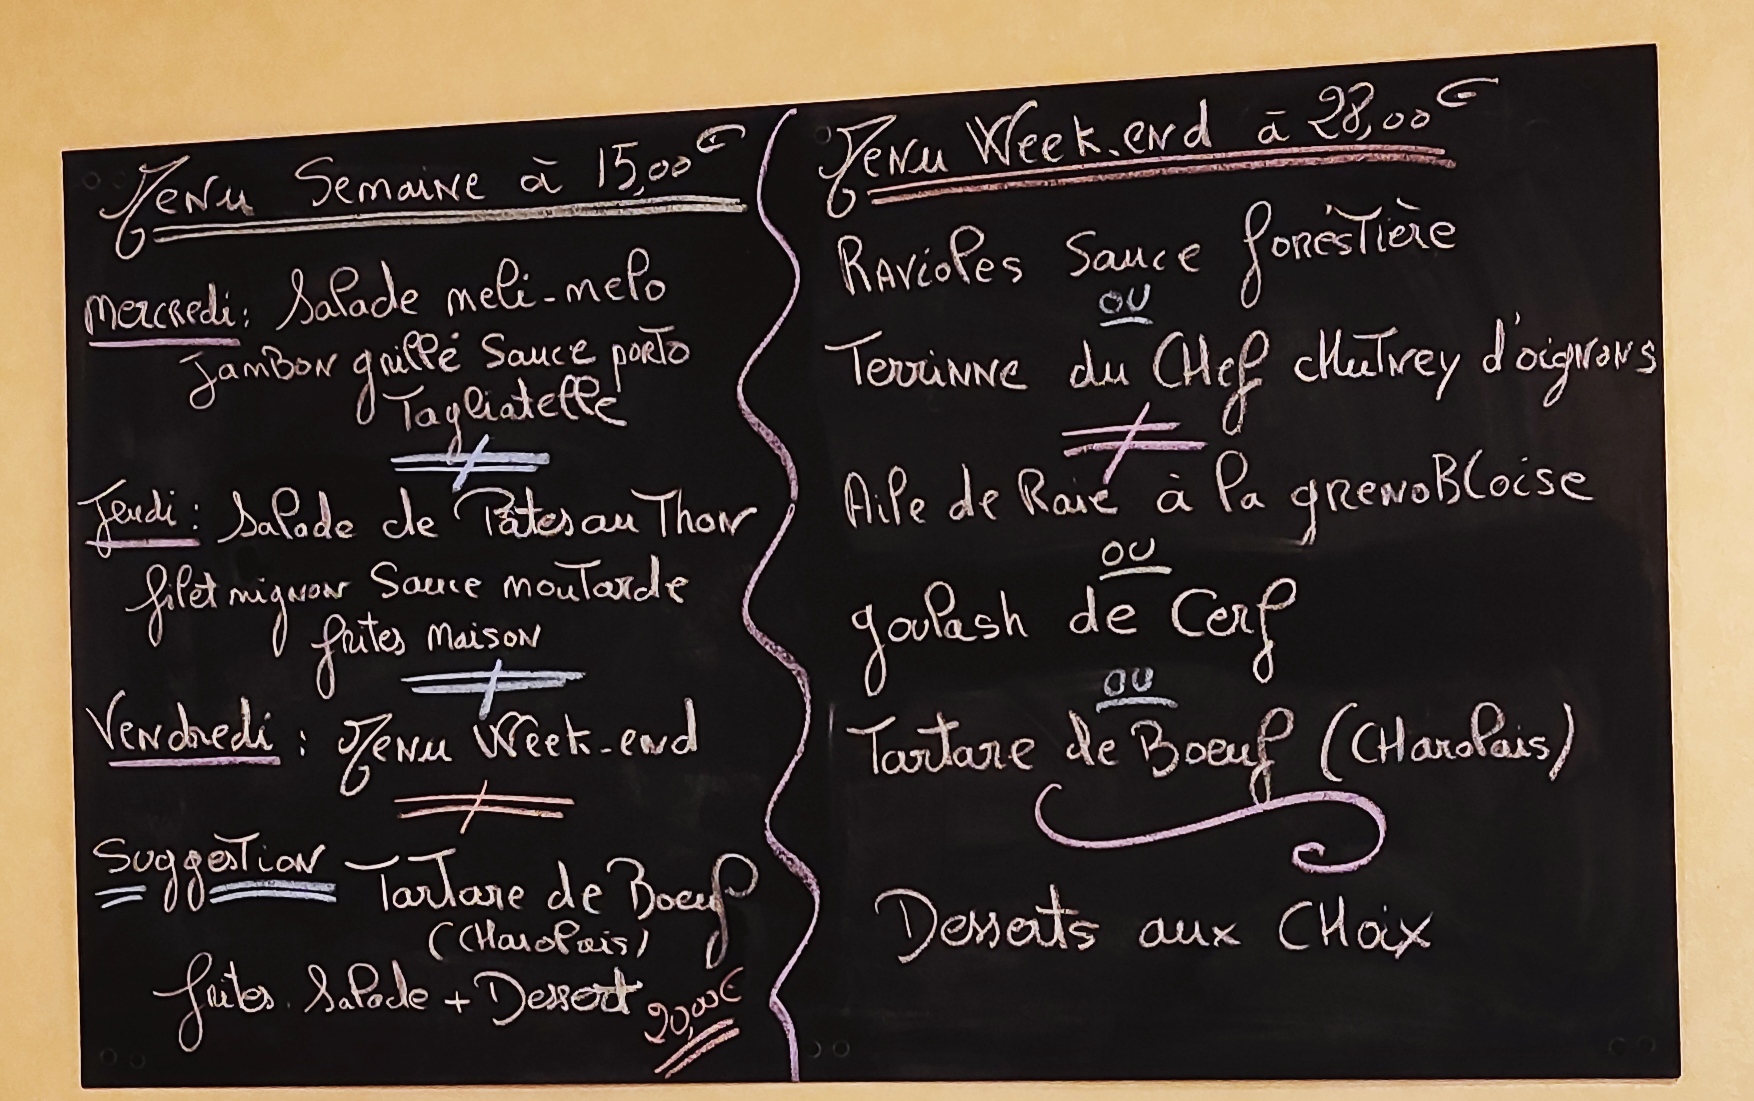 Menu Semaine à 15,00€
Mercredi: Salade meli-melo
Jambon grillé Sauce porto
Tagliatelle
Jeudi: Salade de Pâtes au Thon
filet mignon Sauce moutarde
frites Maison
Vendredi: Menu Week-end
Suggestion Tartare de Boeuf
(Charolais)
frites. Salade + Dessert 20,00€
Menu Week-end à 28,00€
Ravioles Sauce forestière
ou
Terrinne du Chef chutney d'oignons
Aile de Raie à la grenobloise
ou
goulash de Cerf
ou
Tartare de Boeuf (Charolais)
Desserts aux Choix